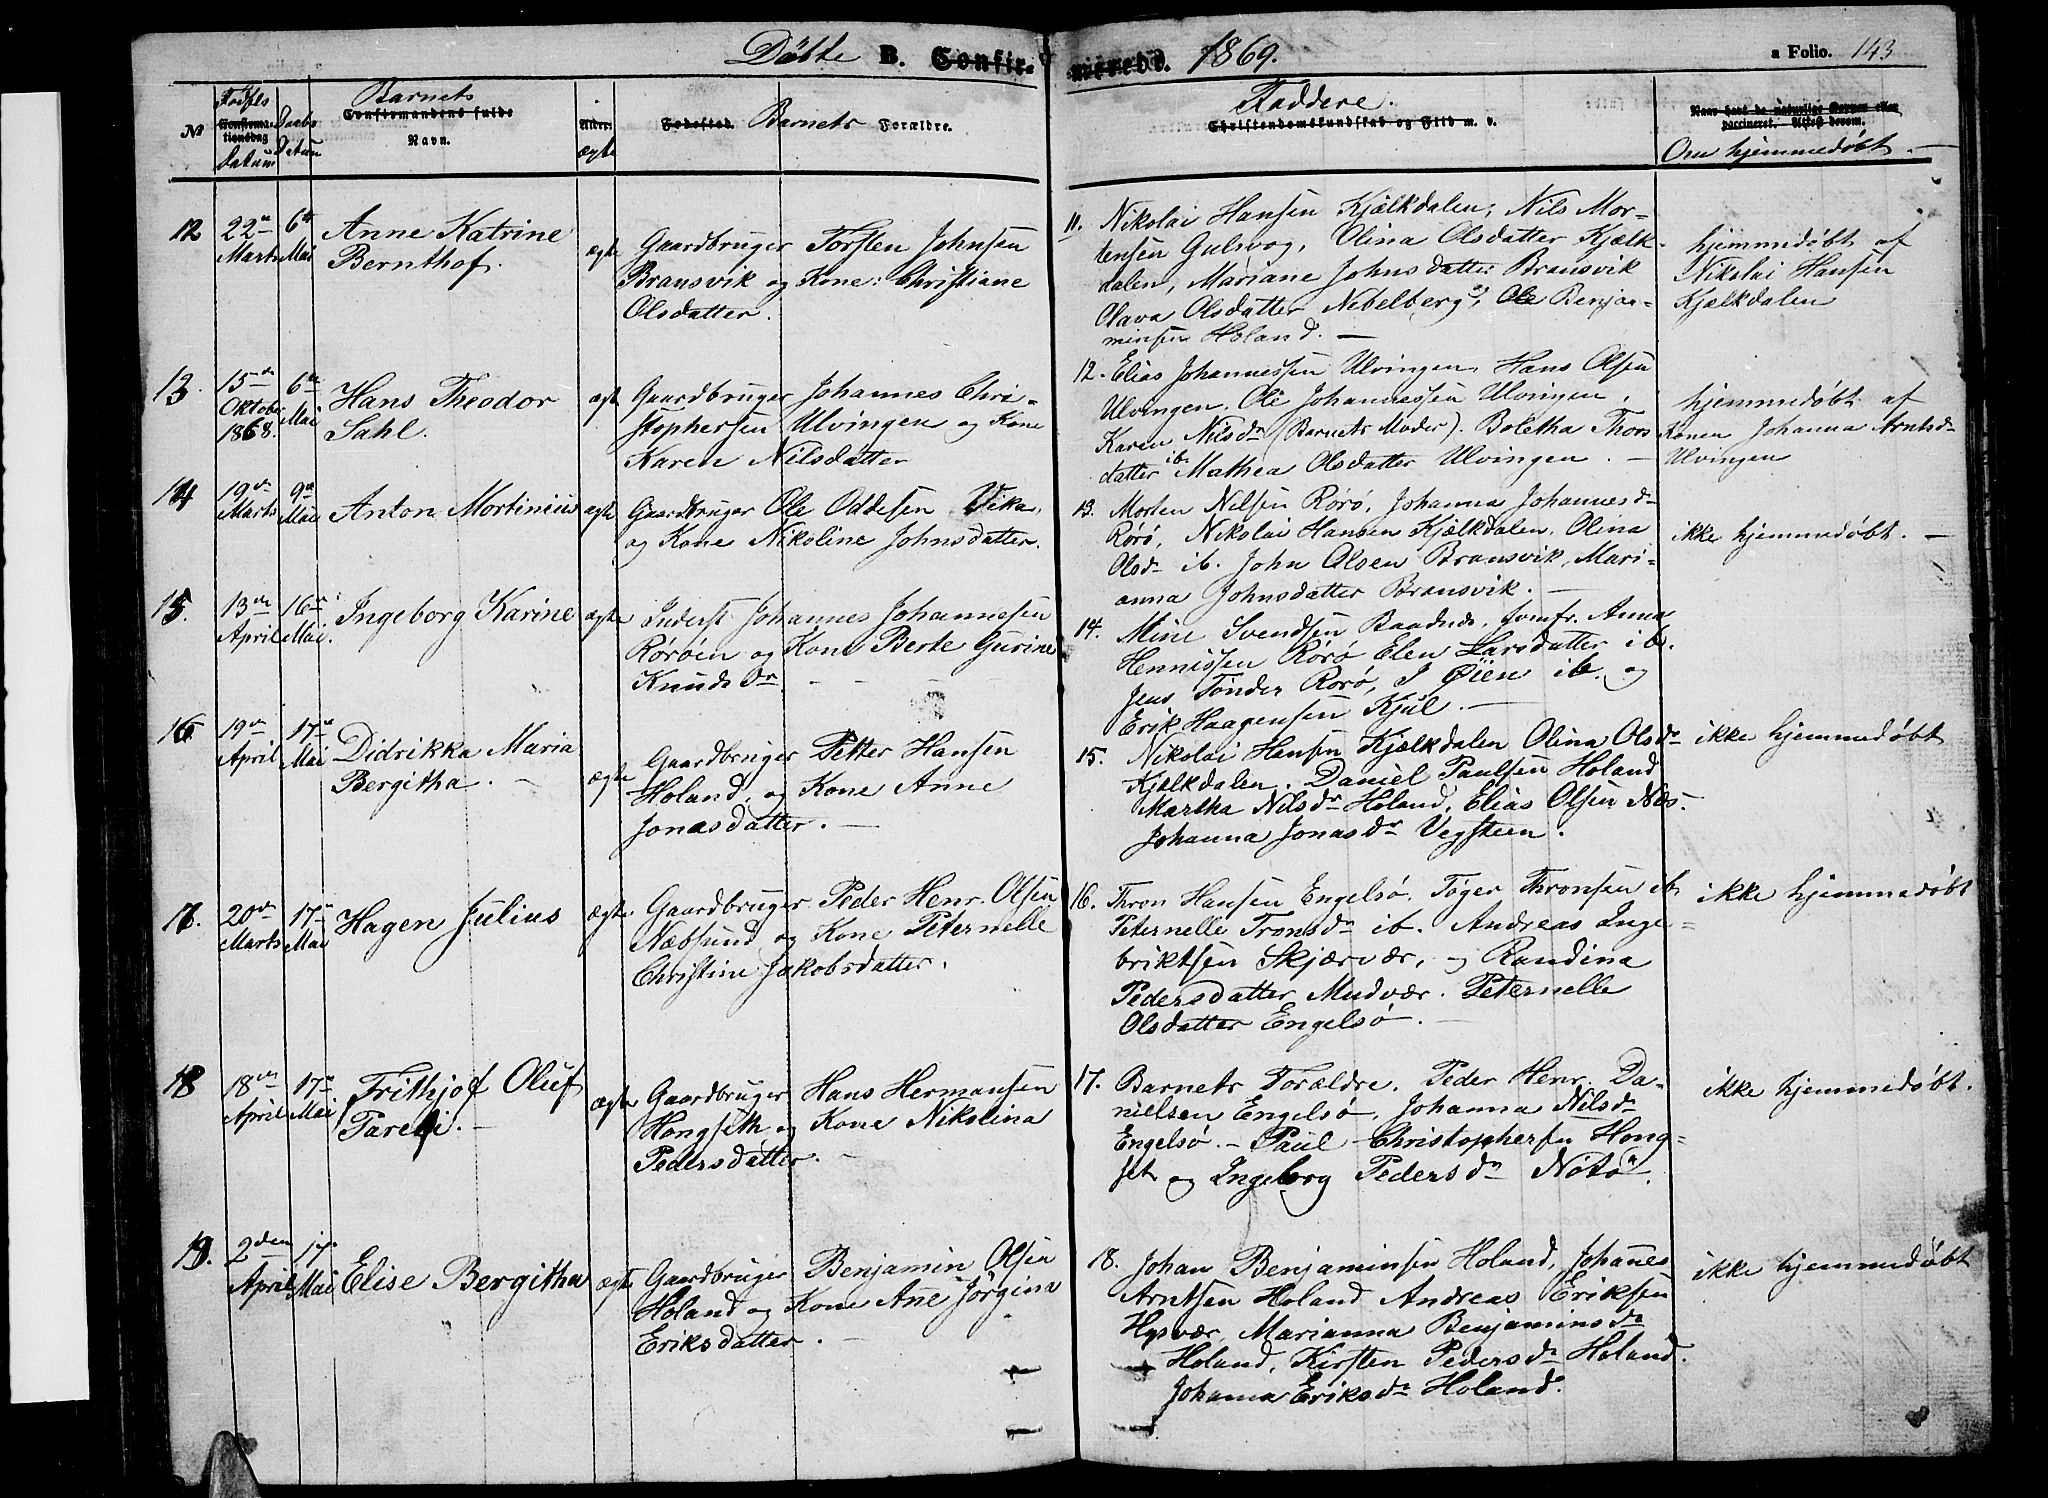 Döbte B. Confir- merede. 1869. a Folio. 143
№
Födsels
Konfirma-
tionsdag
Datum
Daabs
Datum
Barnets
Confirmandens fulde
Navn.
Alder.
ægte
Fødested. Barnets Forældre.
Faddere.
Christendomskundskab og Flid m. v.
Naar havt de naturlige Kopper eller
vaccineret. Attest derom.
Om hjemmedøbt. —
12 22de Marts 6te Mai
Anne Katrine
Bernthof.
ægte
Gaardbruger Torsten Johnsen
Bransvik og Kone: Christiane
Olsdatter.
11. Nikolai Hansen Kjælkdalen, Nils Mor-
tensen Gulsvog, Olina Olsdatter Kjælk-
dalen, Mariane Johnsdatter Bransvik
Olava Olsdatter Nebelberg, Ole Benja-
minsen Holand. —
hjemmedøbt af
Nikolai Hansen
Kjælkdalen
13. 15de Oktober 1868. 6te Mai
Hans Theodor
Sahl.
ægt
Gaardbruger Johannes Chri-
stophersen Ulvingen og Kone
Karen Nilsdatter
12. Elias Johannessen Ulvingen, Hans Olsen
Ulvingen. Ole Johannessen Ulvingen,
Karen Nilsdr (Barnets Moder). Boletha Thors
datter ib. Mathea Olsdatter Ulvingen. —
hjemmedøbt af
Konen Johanna Arntsd-
Ulvingen
14 19de Marts 9de Mai
Anton Mortinius
ægte
Gaardbruger Ole Oddesen Vika,
og Kone Nikoline Johnsdatter.
13. Morten Nilsen Rörö, Johanna Johannesdr
Rörö, Nikolai Hansen Kjælkdalen. Olina
Olsdr ib. John Olsen Bransvik, Mari-
anna Johnsdatter Bransvik. —
ikke hjemmedøbt. —
15. 13de April 16de Mai.
Ingeborg Karine
ægte
Inderst Johannes Johannesen
Röröen og Kone Berte Gurine
Knudsdr. - - -
14. Mine Svendsen Baadnds. Jomfr. Anna
Hennissen Rörö Elen Larsdatter ib.
Jens Tönder Rörö, J Öien ib. og
Erik Haagensen Kjul. —
16. 19de April 17de Mai
Didrikka Maria
Bergitha. —
ægte
Gaardbruger Petter Hansen
Holand, og Kone Anne
Jonasdatter. —
15. Nikolai Hansen Kjælkdalen Olina Olsdr
Kjælkdalen. Daniel Paulsen Holand
Martha Nilsdr Holand, Elias Olsen Næs-
Johanna Jonasdr Vegsteen.
ikke hjemmedøbt
17. 20de Marts 17de Mai
Hagen Julius
ægte
Gaardbruger Peder Henr. Olsen
Næbsund og Kone Peternelle
Christine Jakobsdatter.
16. Thron Hansen Engelsö. Töger Thronsen ib
Peternelle Tronsdr ib. Andreas Inge-
briktsen Skjærvær, og Randina
Pedersdatter Mudvær. Peternelle
Olsdatter Engelsö. —
ikke hjemmedøbt
18 18de April 17de Mai
Frithjof Oluf
Pareli. —
ægte
Gaardbruger Hans Hermansen
Hongseth og Kone Nikolina
Pedersdatter. —
17. Barnets Forældre. Peder Henr. Da-
nielsen Engelsö, Johanna Nilsdr
Engelsö. — Paul Christophersen Hong-
set og Ingeborg Pedersdr Nötö.
ikke hjemmedøbt.
19. 2den April 17de Mai
Elise Bergitha
ægte
Gaardbruger Benjamin Olsen
Holand og Kone Ane Jörgina
Eriksdatter. —
18. Johan Benjaminsen Holand, Johanes
Arntsen Holand Andreas Eriksen
Hysvær, Marianna Benjaminsdr
Holand, Kirsten Pedersdr Holand.
Johanna Eriksdr Holand.
ikke hjemmedøbt